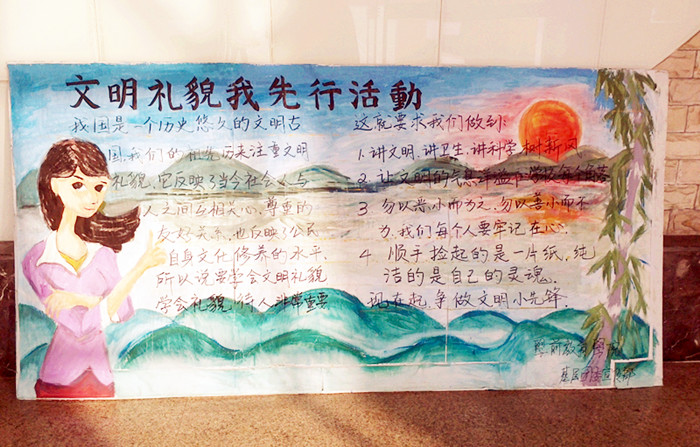 文明礼貌我先行活動
我国是一个历史悠久的文明古
国,我们的祖先历来注重文明
礼貌,它反映了当今社会人与
人之间互相关心、尊重的
友好关系,也反映了公民
自身文化修养的水平,
所以说要学会文明礼貌
学会礼貌待人非常重要
这就要求我们做到:
1.讲文明、讲卫生、讲科学、树新风
2.让文明的气息洋溢于学校每个角落
3 勿以恶小而为之,勿以善小而不
为,我们每个人要牢记在心.
4.顺手捡起的是一片纸,纯
洁的是自己的灵魂.
现在起,争做文明小先锋.
学前教育
基层团委宣传部